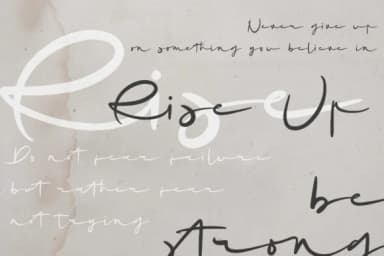 Never give up
on something you believe in
Rise
Rise Up
Do not fear failure
but rather fear
not trying
be
strong